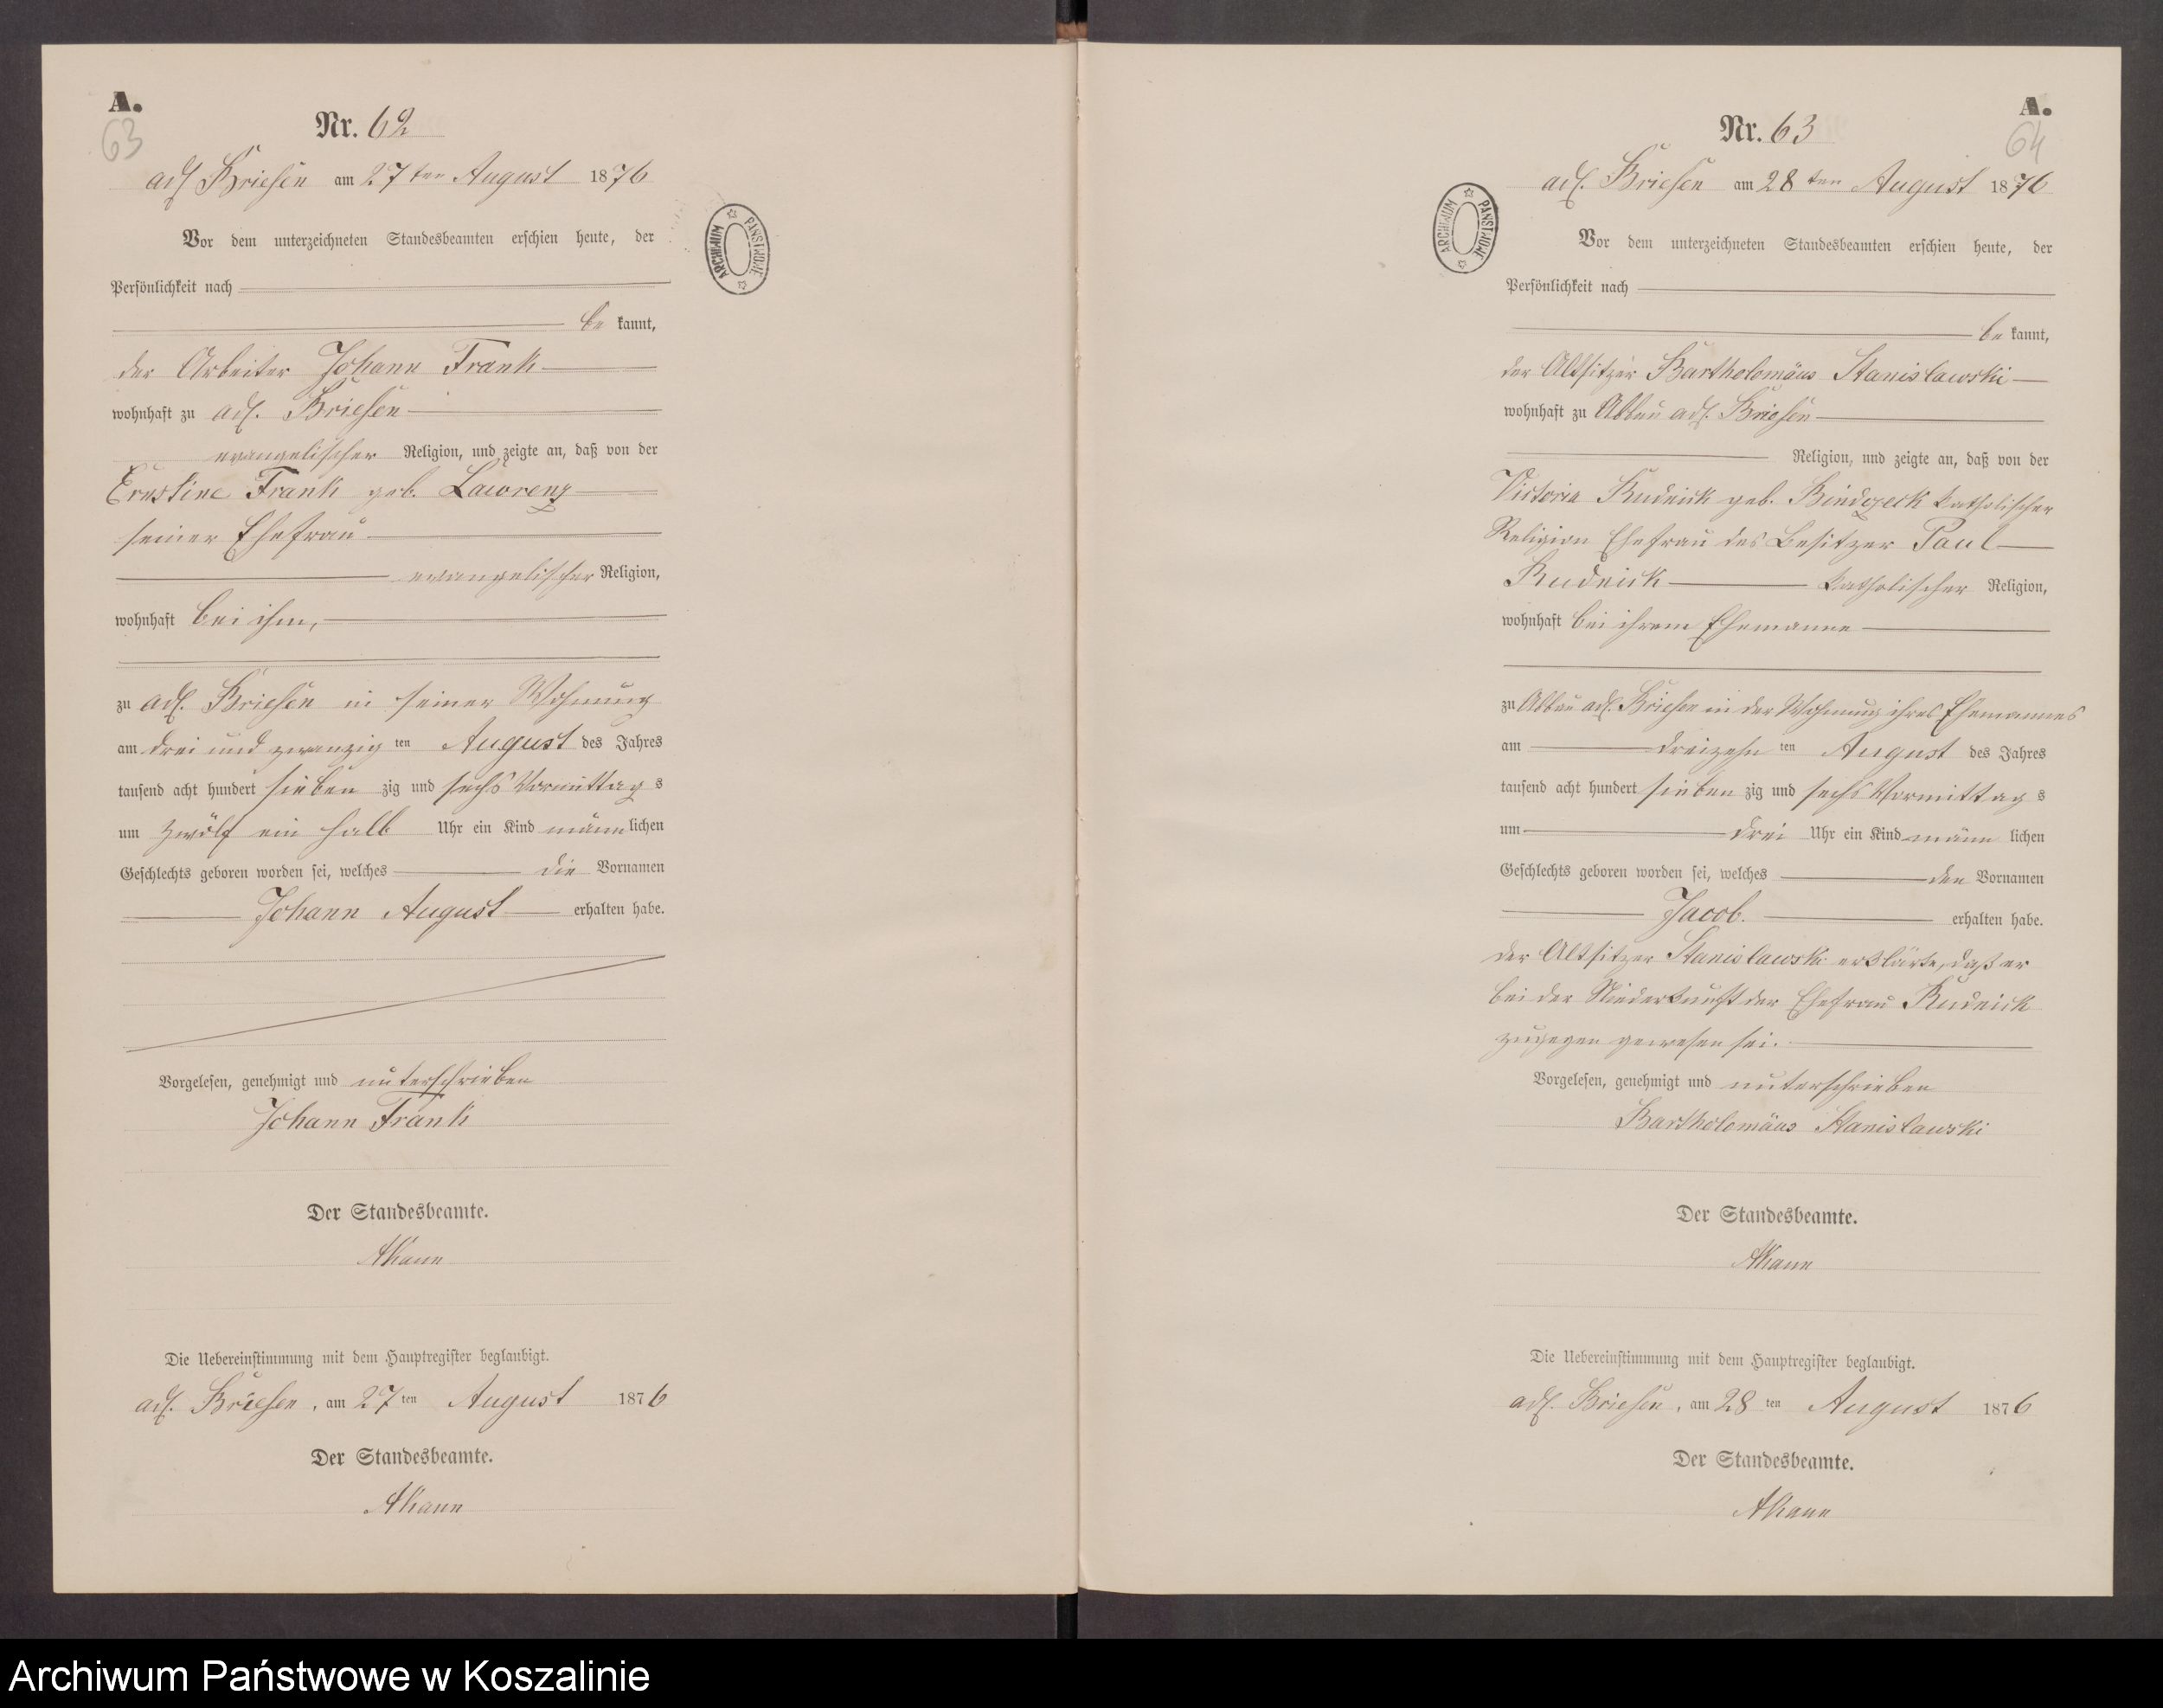 A.
63
Nr. 62
adl Briesen am 27 ten August 1876
Vor dem unterzeichneten Standesbeamten erschien heute, der
Persönlichkeit nach
be kannt,
der Arbeiter Johann Frank
wohnhaft zu adl. Briesen
evangelischer Religion, und zeigte an, daß von der
Ernstine Frank geb. Lawrenz
seiner Ehefrau
evangelischer Religion,
wohnhaft bei ihm,
zu adl. Briesen in seiner Wohnung
am drei und zwanzig ten August des Jahres
tausend acht hundert sieben zig und sechs Vormittag s
um zwölf ein halb Uhr ein Kind männ lichen
Geschlechts geboren worden sei, welches die Vornamen
Johann August erhalten habe.
Vorgelesen, genehmigt und unterschrieben
Johann Frank
Der Standesbeamte.
Die Uebereinstimmung mit dem Hauptregister beglaubigt.
adl. Briesen, am 27 ten August 1876
Der Standesbeamte.
ARCHIWUM PAŃSTWOWE
A.
64
Nr. 63
adl. Briesen am 28 ten August 1876
Vor dem unterzeichneten Standesbeamten erschien heute, der
Persönlichkeit nach
be kannt,
der Altsitzer Bartholomäus Stanislawski
wohnhaft zu Abbau adl. Briesen
Religion, und zeigte an, daß von der
Victoria Rudnick geb. katholischer
Religion Ehefrau des Besitzer Paul
Rudnick katholischer Religion,
wohnhaft bei ihrem Ehemanne
zu Abbau adl. Briesen in der Wohnung ihres Ehemannes
am dreizehn ten August des Jahres
tausend acht hundert sieben zig und sechs Vormittag s
um drei Uhr ein Kind männ lichen
Geschlechts geboren worden sei, welches den Vornamen
Jacob. erhalten habe.
der Altsitzer Stanislawski erklärte, daß er
bei der Niederkunft der Ehefrau Rudnick
zugegen gewesen sei.
Vorgelesen, genehmigt und unterschrieben
Bartholomäus Stanislawski
Der Standesbeamte.
Die Uebereinstimmung mit dem Hauptregister beglaubigt.
adl. Briesen, am 28 ten August 1876
Der Standesbeamte.
ARCHIWUM PAŃSTWOWE
Archiwum Państwowe w Koszalinie